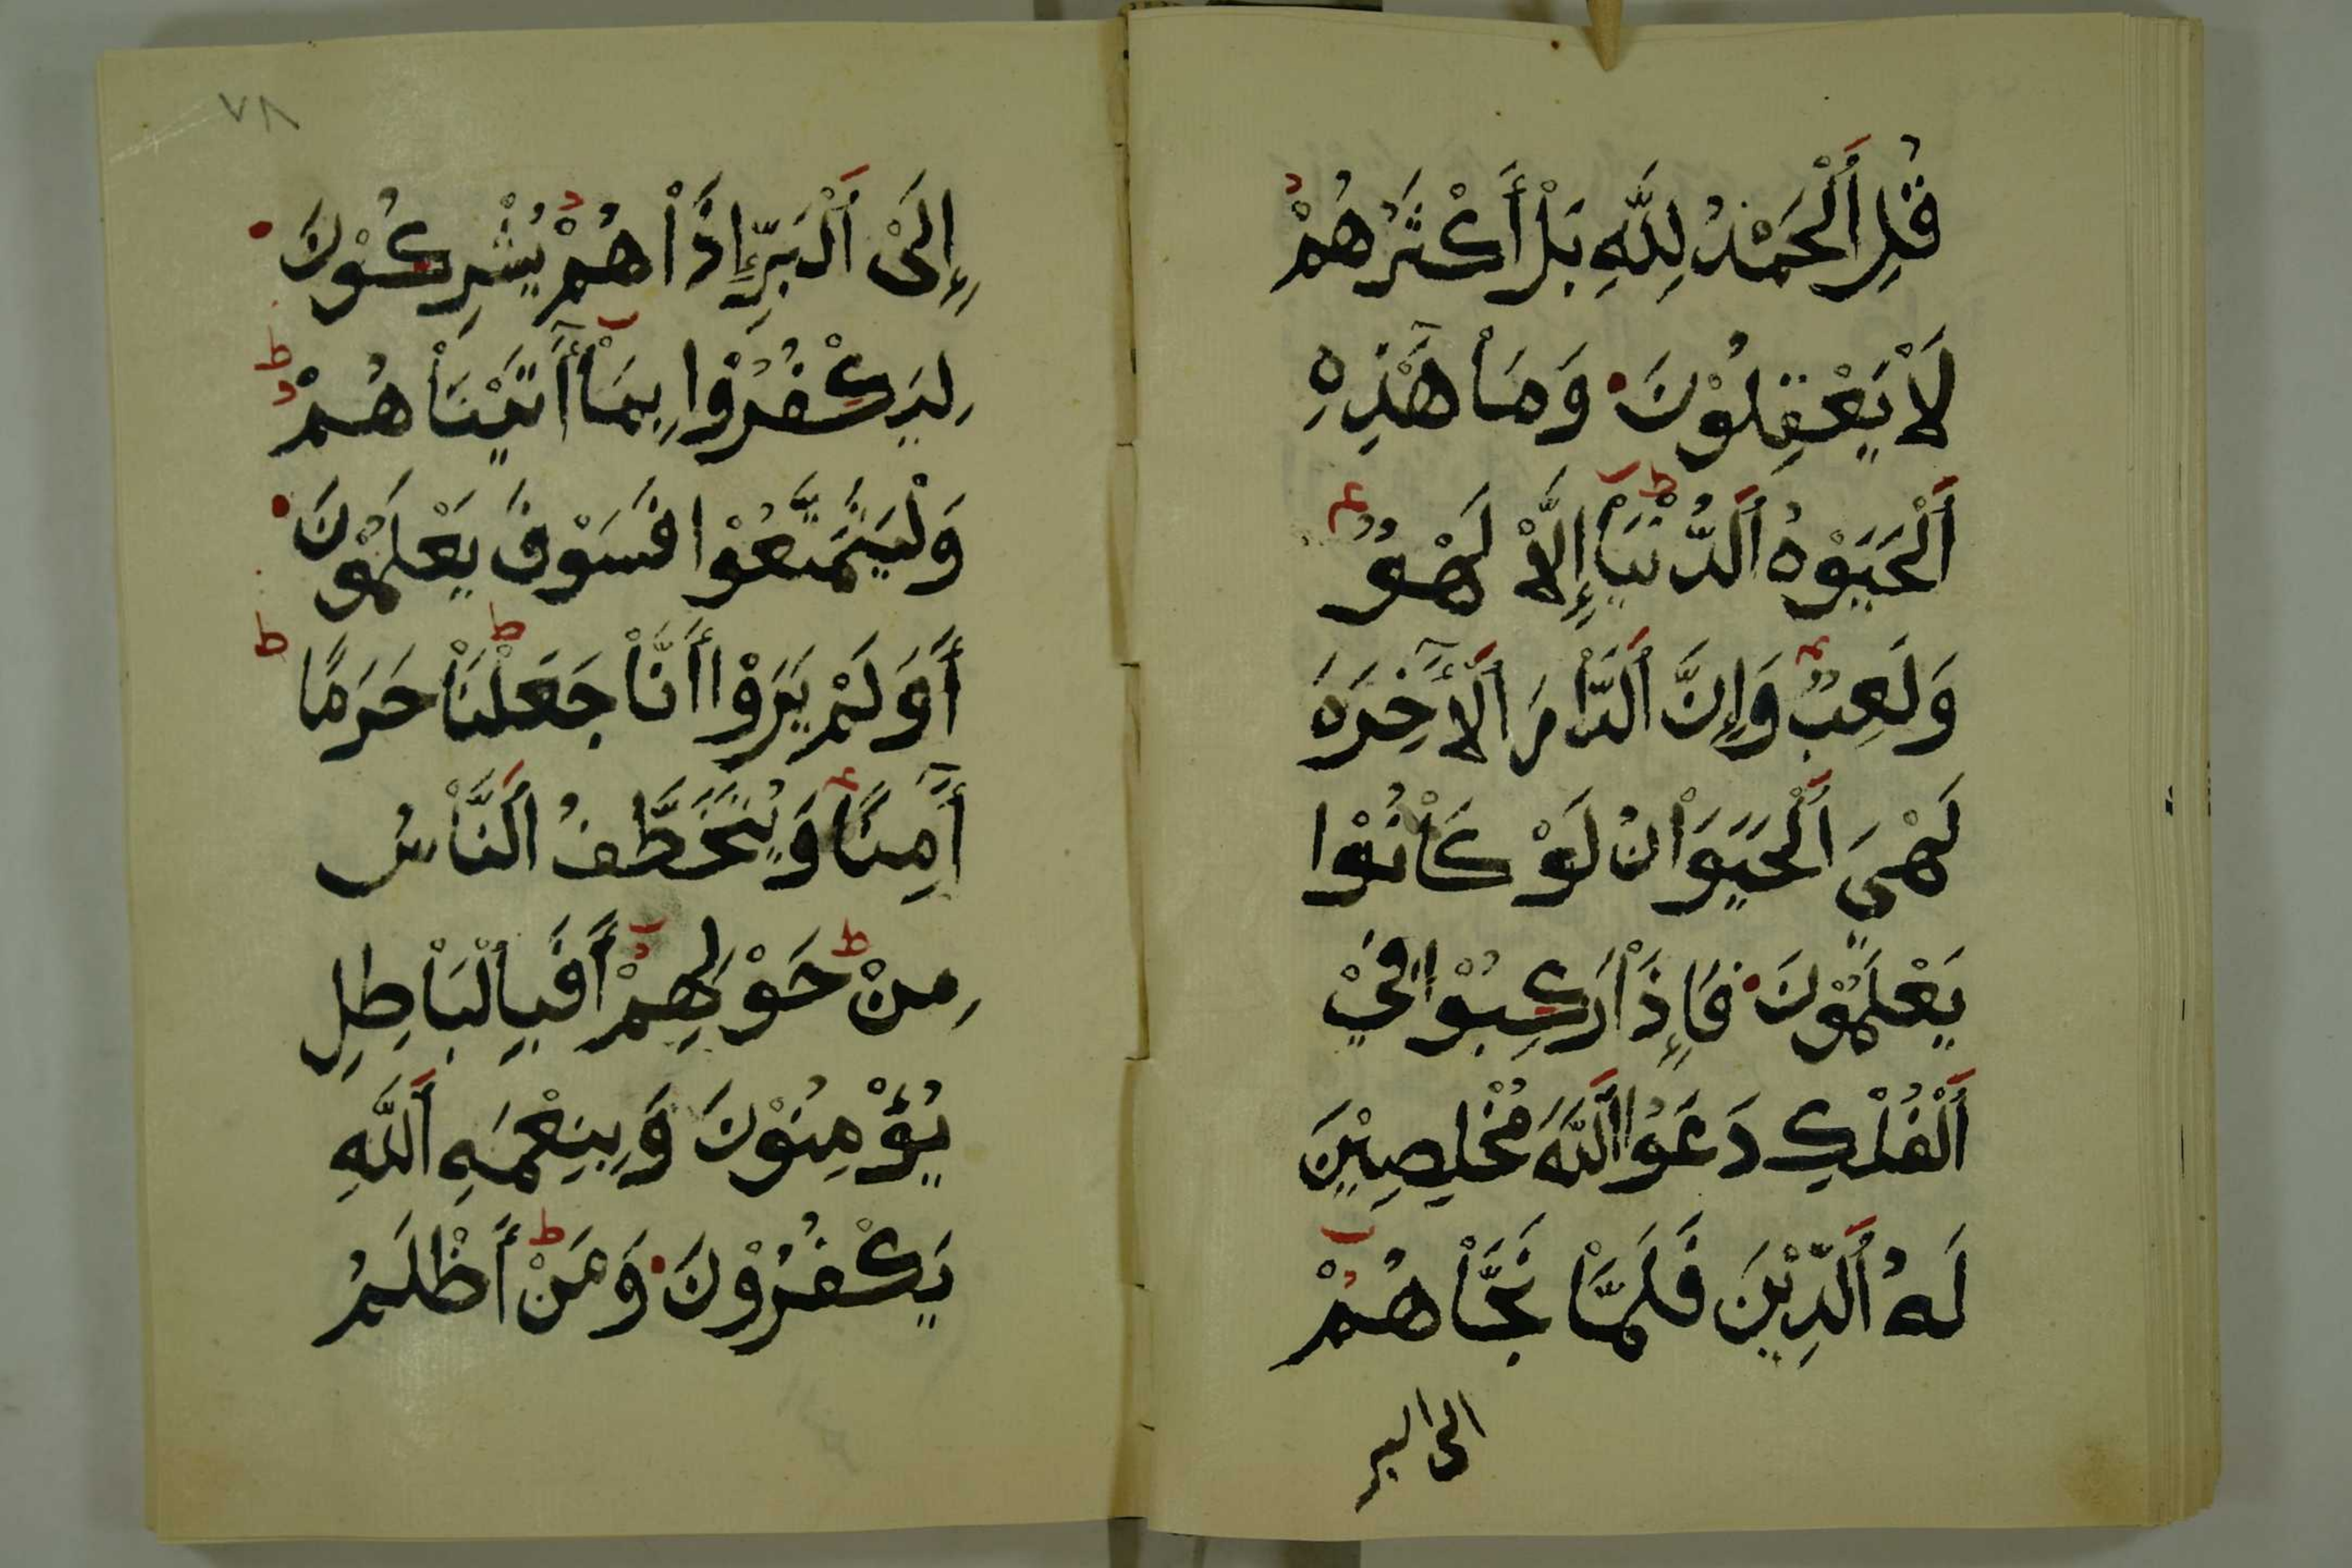 قُلِ اَ۬لْحَمْدُ لِلَّهِ بَلْ أَكْثَرُهُمْ
لَاْ يَعْقِلُوْنَ وَمَاْ هَٰذِهِ
اَ۬لْحَيَوٰةُ اُ۬لدُّنْيَاْ إِلَّاْ لَهْوٌ
وَلَعِبٌ وَإِنَّ اَ۬لدَّاْرَ اَ۬لْأَٓخِرَةَ
لَهْيَ اَ۬لْحَيَوَاْنُ لَوْ كَاْنُوْا
يَعْلَمُوْنَ فَإِذَاْ رَكِبُوْا فِيْ
اِ۬لْفُلْكِ دَعَوُا اُ۬للَّهَ مُخْلِصِيْنَ
لَهُ اُ۬لدِّيْنَ فَلَمَّاْ نَجَّاْهُمْ
الى البر
٧٨
إِلَىْ اَ۬لْبَرِّ إِذَاْ هُمْ يُشْرِكُوْنَ
لِيَكْفُرُوْا بِمَاْ أَٓتَيْنَاْهُمْ
وَلْيَتَمَتَّعُوْا فَسَوْفَ يَعْلَمُوْنَ
أَوَلَمْ يَرَوْا أَنَّاْ جَعَلْنَاْ حَرَمًا
أَٓمِنًا وَيُتَخَطَّفُ اُ۬لنَّاْسُ
مِنْ حَوْلِهِمْ أَفَبِالْبَاْطِلِ
يُؤْمِنُوْنَ وَبِنِعْمَةِ اِ۬للَّهِ
يَكْفُرُوْنَ وَمَنْ أَظْلَمُ